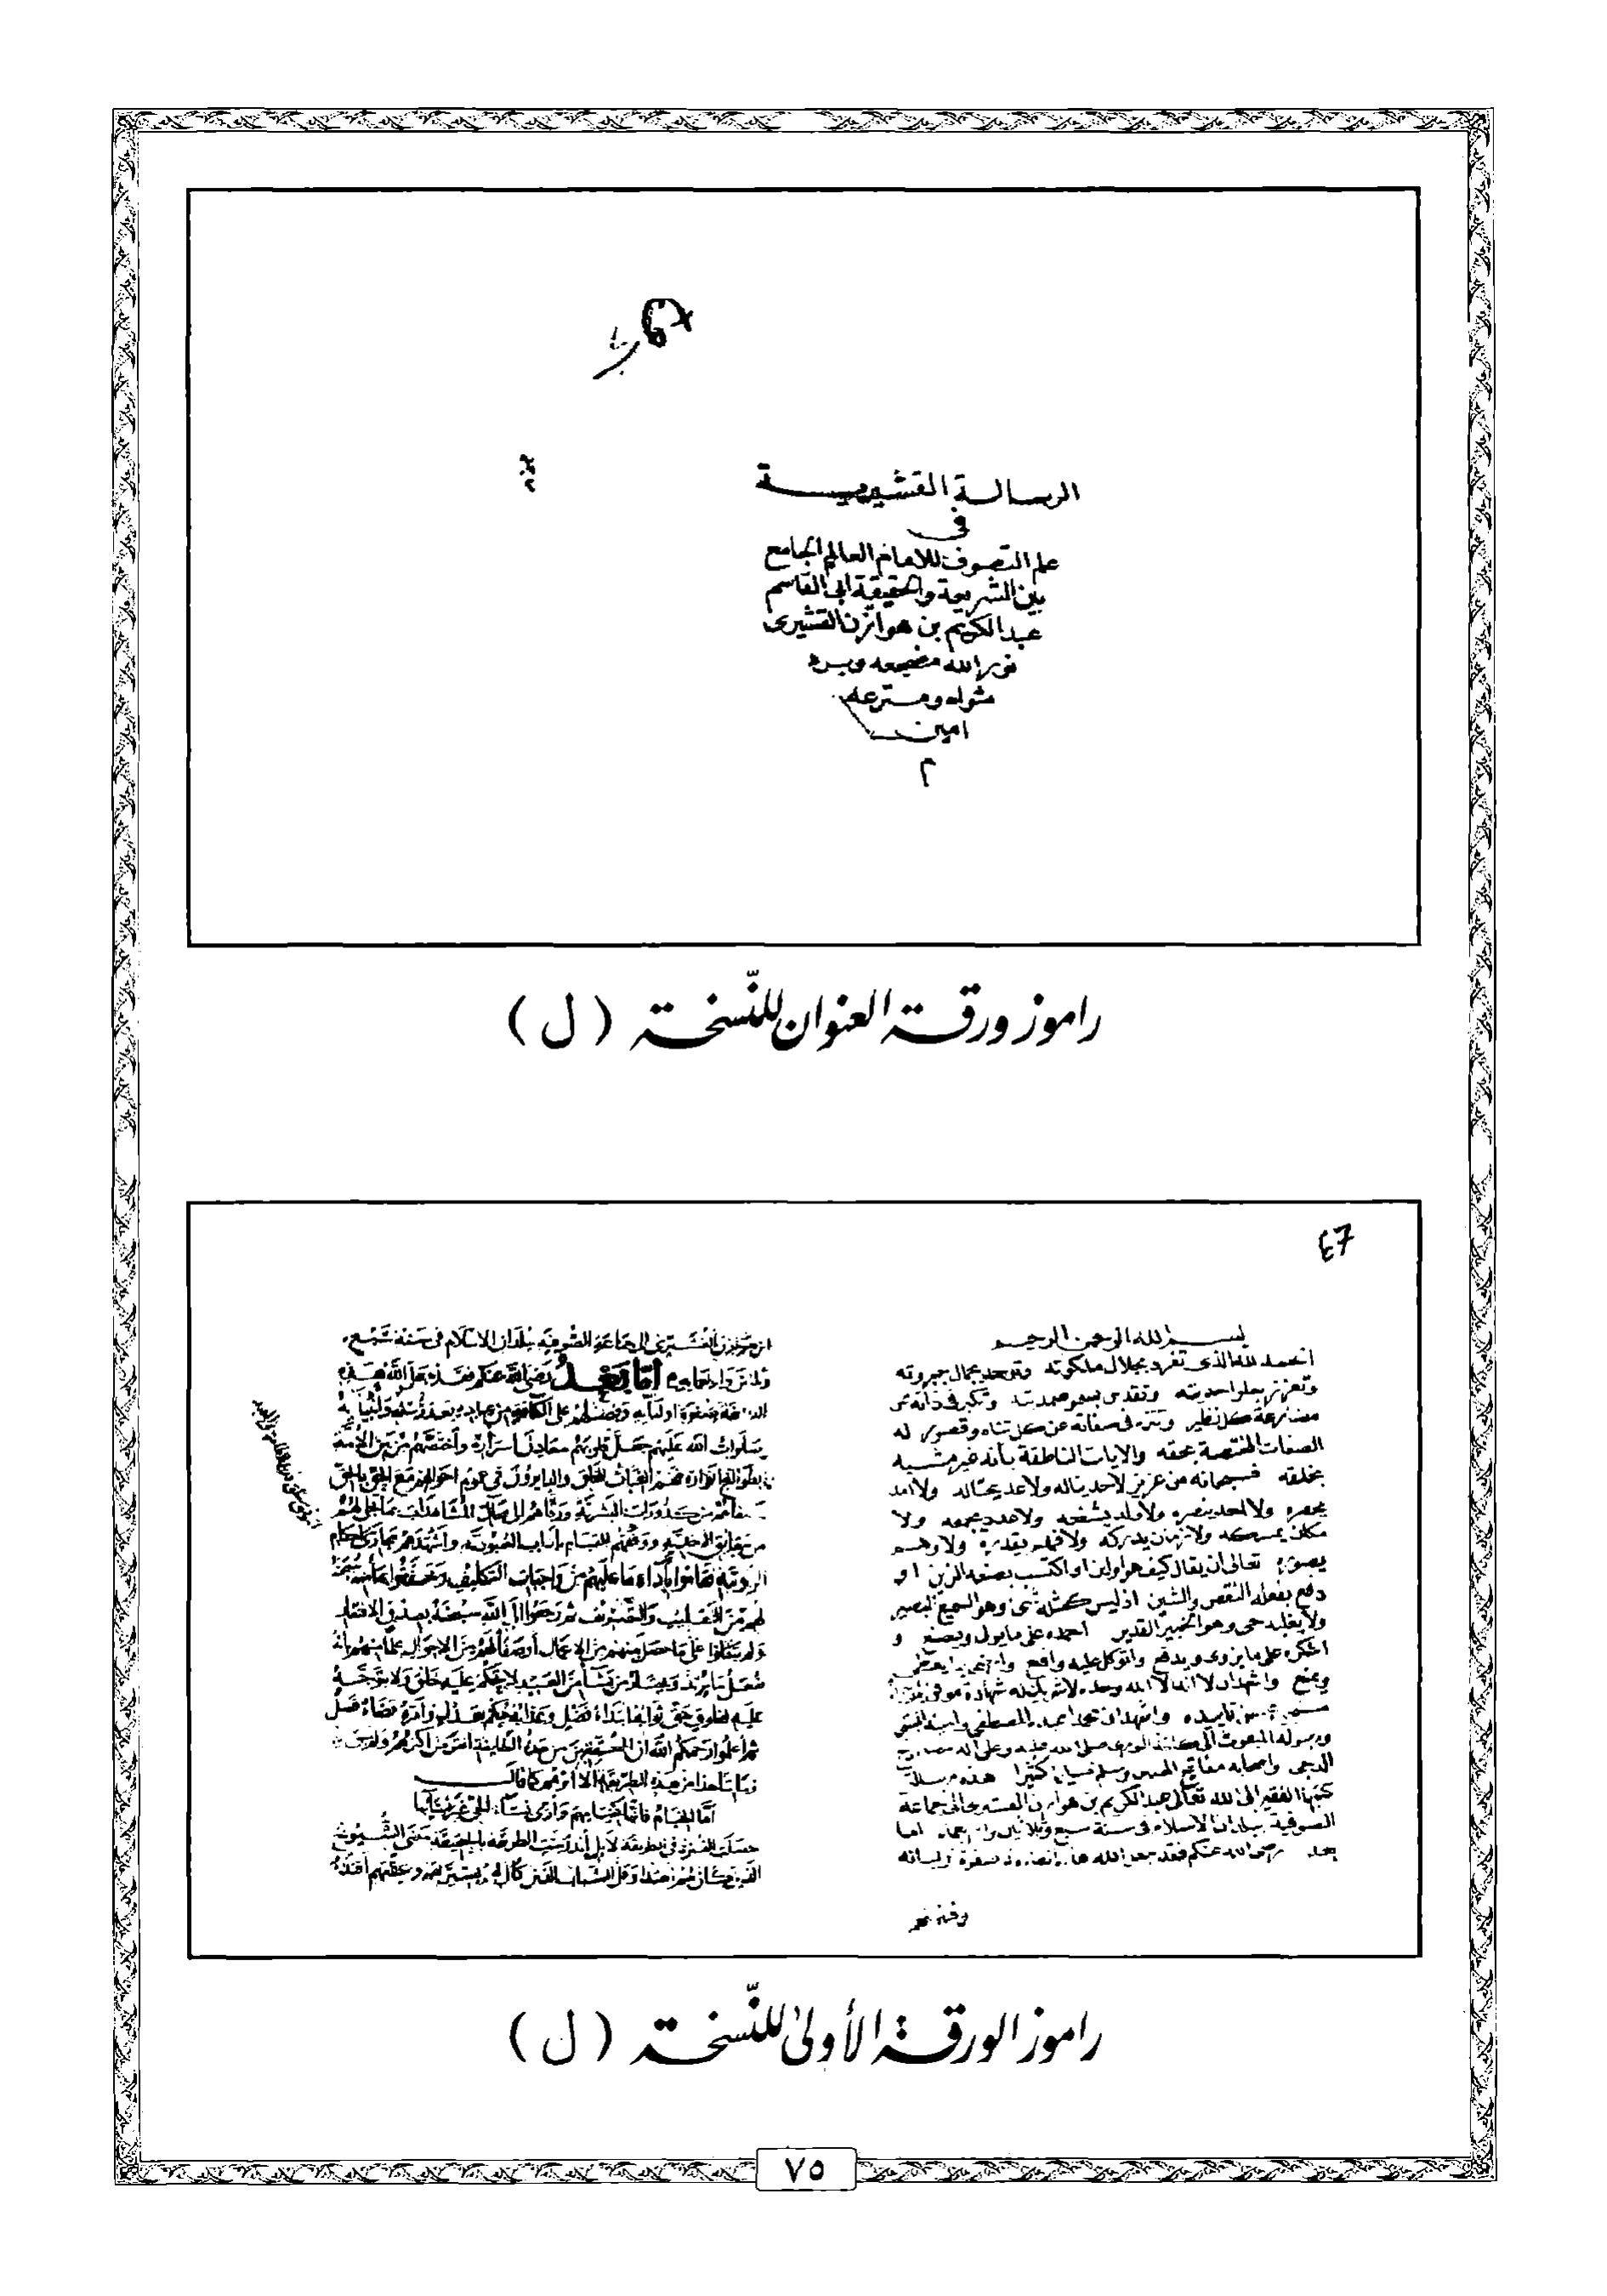 الرسالة القشيرية
في
علم التصوف للامام العالم الجامع
بين الشريعة والحقيقة ابى القاسم
عبد الكريم بن هوازن القشيرى
نور الله مضجعه وبرد
مثواه ومترعه
امين
م
راموز ورقة العنوان للنّسخة ( ل )
67
بسم الله الرحمن الرحيم
الحمد لله الذى تفرد بجلال ملكوته وتوحد بجمال جبروته
وتعزز بعلو احديته وتقدس بسمو صمديته وتكبر فى ذاته عن
مضارعة كل نظير وتنزه فى صفاته عن كل تناه وقصور له
الصفات المختصة بحقه والايات الناطقة بأنه غير مشبه
بخلقه فسبحانه من عزيز لاحد يناله ولا عد يحتاله ولا امد
يحصره ولا احد ينصره ولا ولد يشفعه ولا عدد يجمعه ولا
مكان يمسكه ولا زمان يدركه ولا فهم يقدره ولا وهم
يصوره تعالى ان يقال كيف هو او اين او اكتسب بصنعه الزين او
دفع بفعله النقص والشين اذ ليس كمثله شئ وهو السميع البصير
ولا يغلبه حى وهو الخبير القدير احمده على ما يولى ويصنع و
اشكره على ما يزوى ويدفع واتوكل عليه واقنع وارضى بما يعطى
ويمنع واشهد ان لا اله الا الله وحده لا شريك له شهادة موقن
واشهد ان محمدا عبده المصطفى وامينه المجتبى
ورسوله المبعوث الى كافة الورى صلى الله عليه وعلى اله مصابيح
الدجى واصحابه مفاتيح وسلم كثيرا هذه رسالة
كتبها الفقير الى الله تعالى عبد الكريم بن هوازن القشيرى الى جماعة
الصوفية ببلدان الاسلام فى سنة سبع وثلاثين واربعماة اما
بعد رضى الله عنكم فقد جعل الله هذه
القشيرى الى جماعة الصوفية ببلدان الاسلام فى سنة سبع
أما بعد رضى الله عنكم فقد جعل الله
اوليايه وفضلهم على الكافة من عباده بعد رسله وانبيايه
صلوات الله عليهم جعل قلوبهم معادن اسراره واختصهم من بين الأمة
انواره فهم الغياث للخلق والدايرون فى عموم احوالهم مع الحق بالحق
من كدورات البشرية ورقاهم الى محال المشاهدات بما تجلى لهم
من حقايق الاحدية ووفقهم للقيام بآداب العبودية واشهدهم مجارى احكام
الربوبية فقاموا بأداء ما عليهم من واجبات التكليف وتحققوا بما منه سبحانه
لهم من التقليب والتصريف ثم رجعوا الى الله سبحانه بصدق الافتقار
ولم يتكلوا على ما حصل منهم من الاعمال أو صفا لهم من الاحوال علما منهم بأنه
يفعل ما يريد ويختار من يشاء من العبيد لا يحكم عليه خلق ولا يتوجه
عليه لمخلوق حق ثوابه ابتداء فضل وعذابه حكم بعدل وأمره قضاء فصل
ثم اعلموا رحمكم الله ان المحققين من هذه الطايفة انقرض اكثرهم ولم يبق
فى زماننا هذا من هذه الطريقة الا أثرهم كما قال
أما الخيام فانها كخيامهم وأرى نساء الحى غير نسايها
حصلت الفترة فى الطريقة لا بل اندرست الطريقة بالحقيقة مضى الشيوخ
الذين كان بهم اهتداء وقل الشباب الذين كان لهم بسيرتهم
راموز الورقة الأولى للنّسخة ( ل )
٧٥